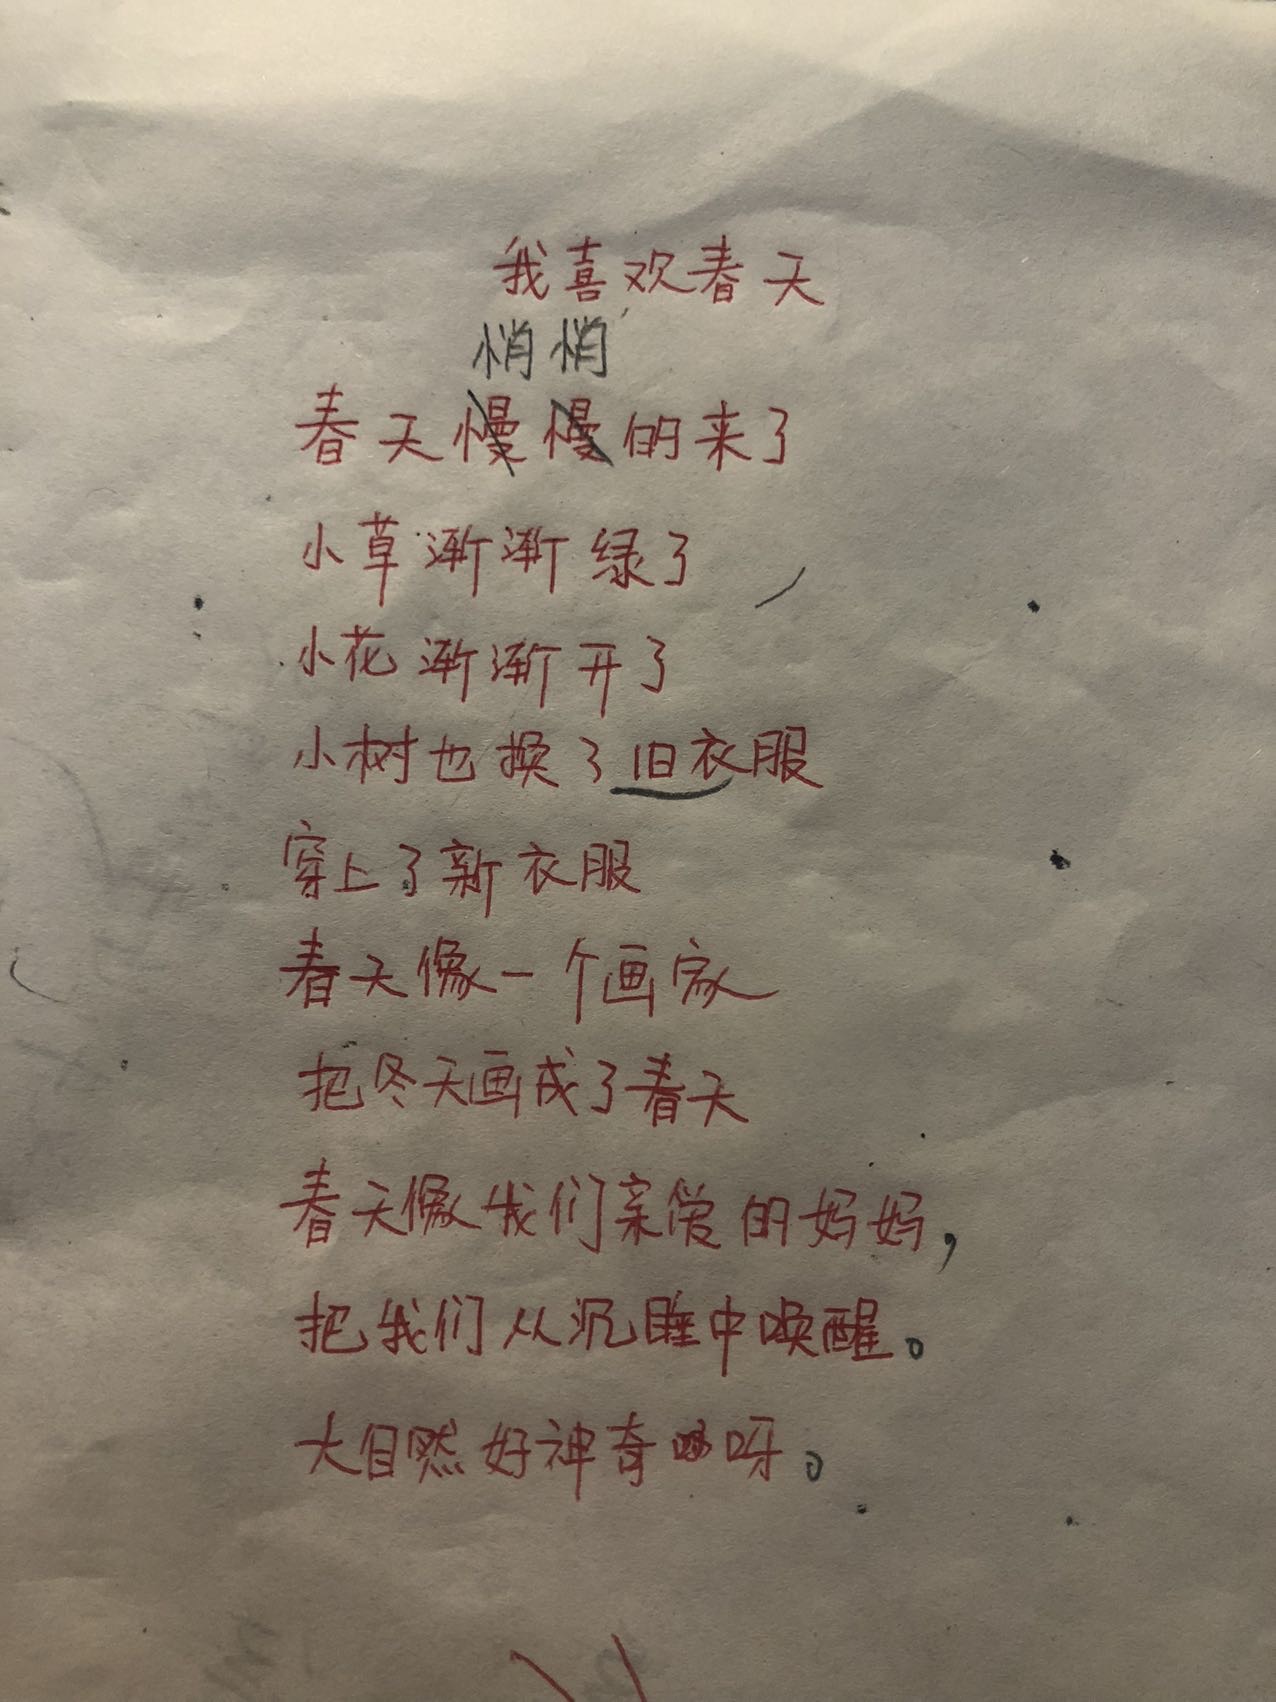 我喜欢春天
悄悄
春天慢慢的来了
小草渐渐绿了
小花渐渐开了
小树也换了旧衣服
穿上了新衣服
春天像一个画家
把冬天画成了春天
春天像我们亲爱的妈妈，
把我们从沉睡中唤醒。
大自然好神奇呀。